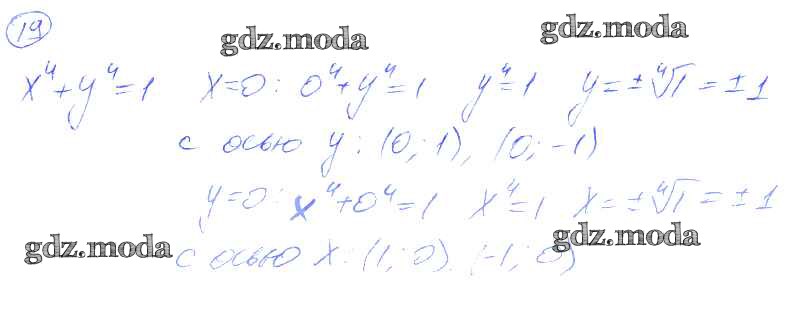 19
gdz.moda
gdz.moda
x⁴+y⁴=1 x=0: 0⁴+y⁴=1 y⁴=1 y=±⁴√1=±1
с осью y: (0; 1), (0; -1)
y=0: x⁴+0⁴=1 x⁴=1 x=±⁴√1=±1
gdz.moda
gdz.moda
с осью x: (1; 0), (-1; 0)